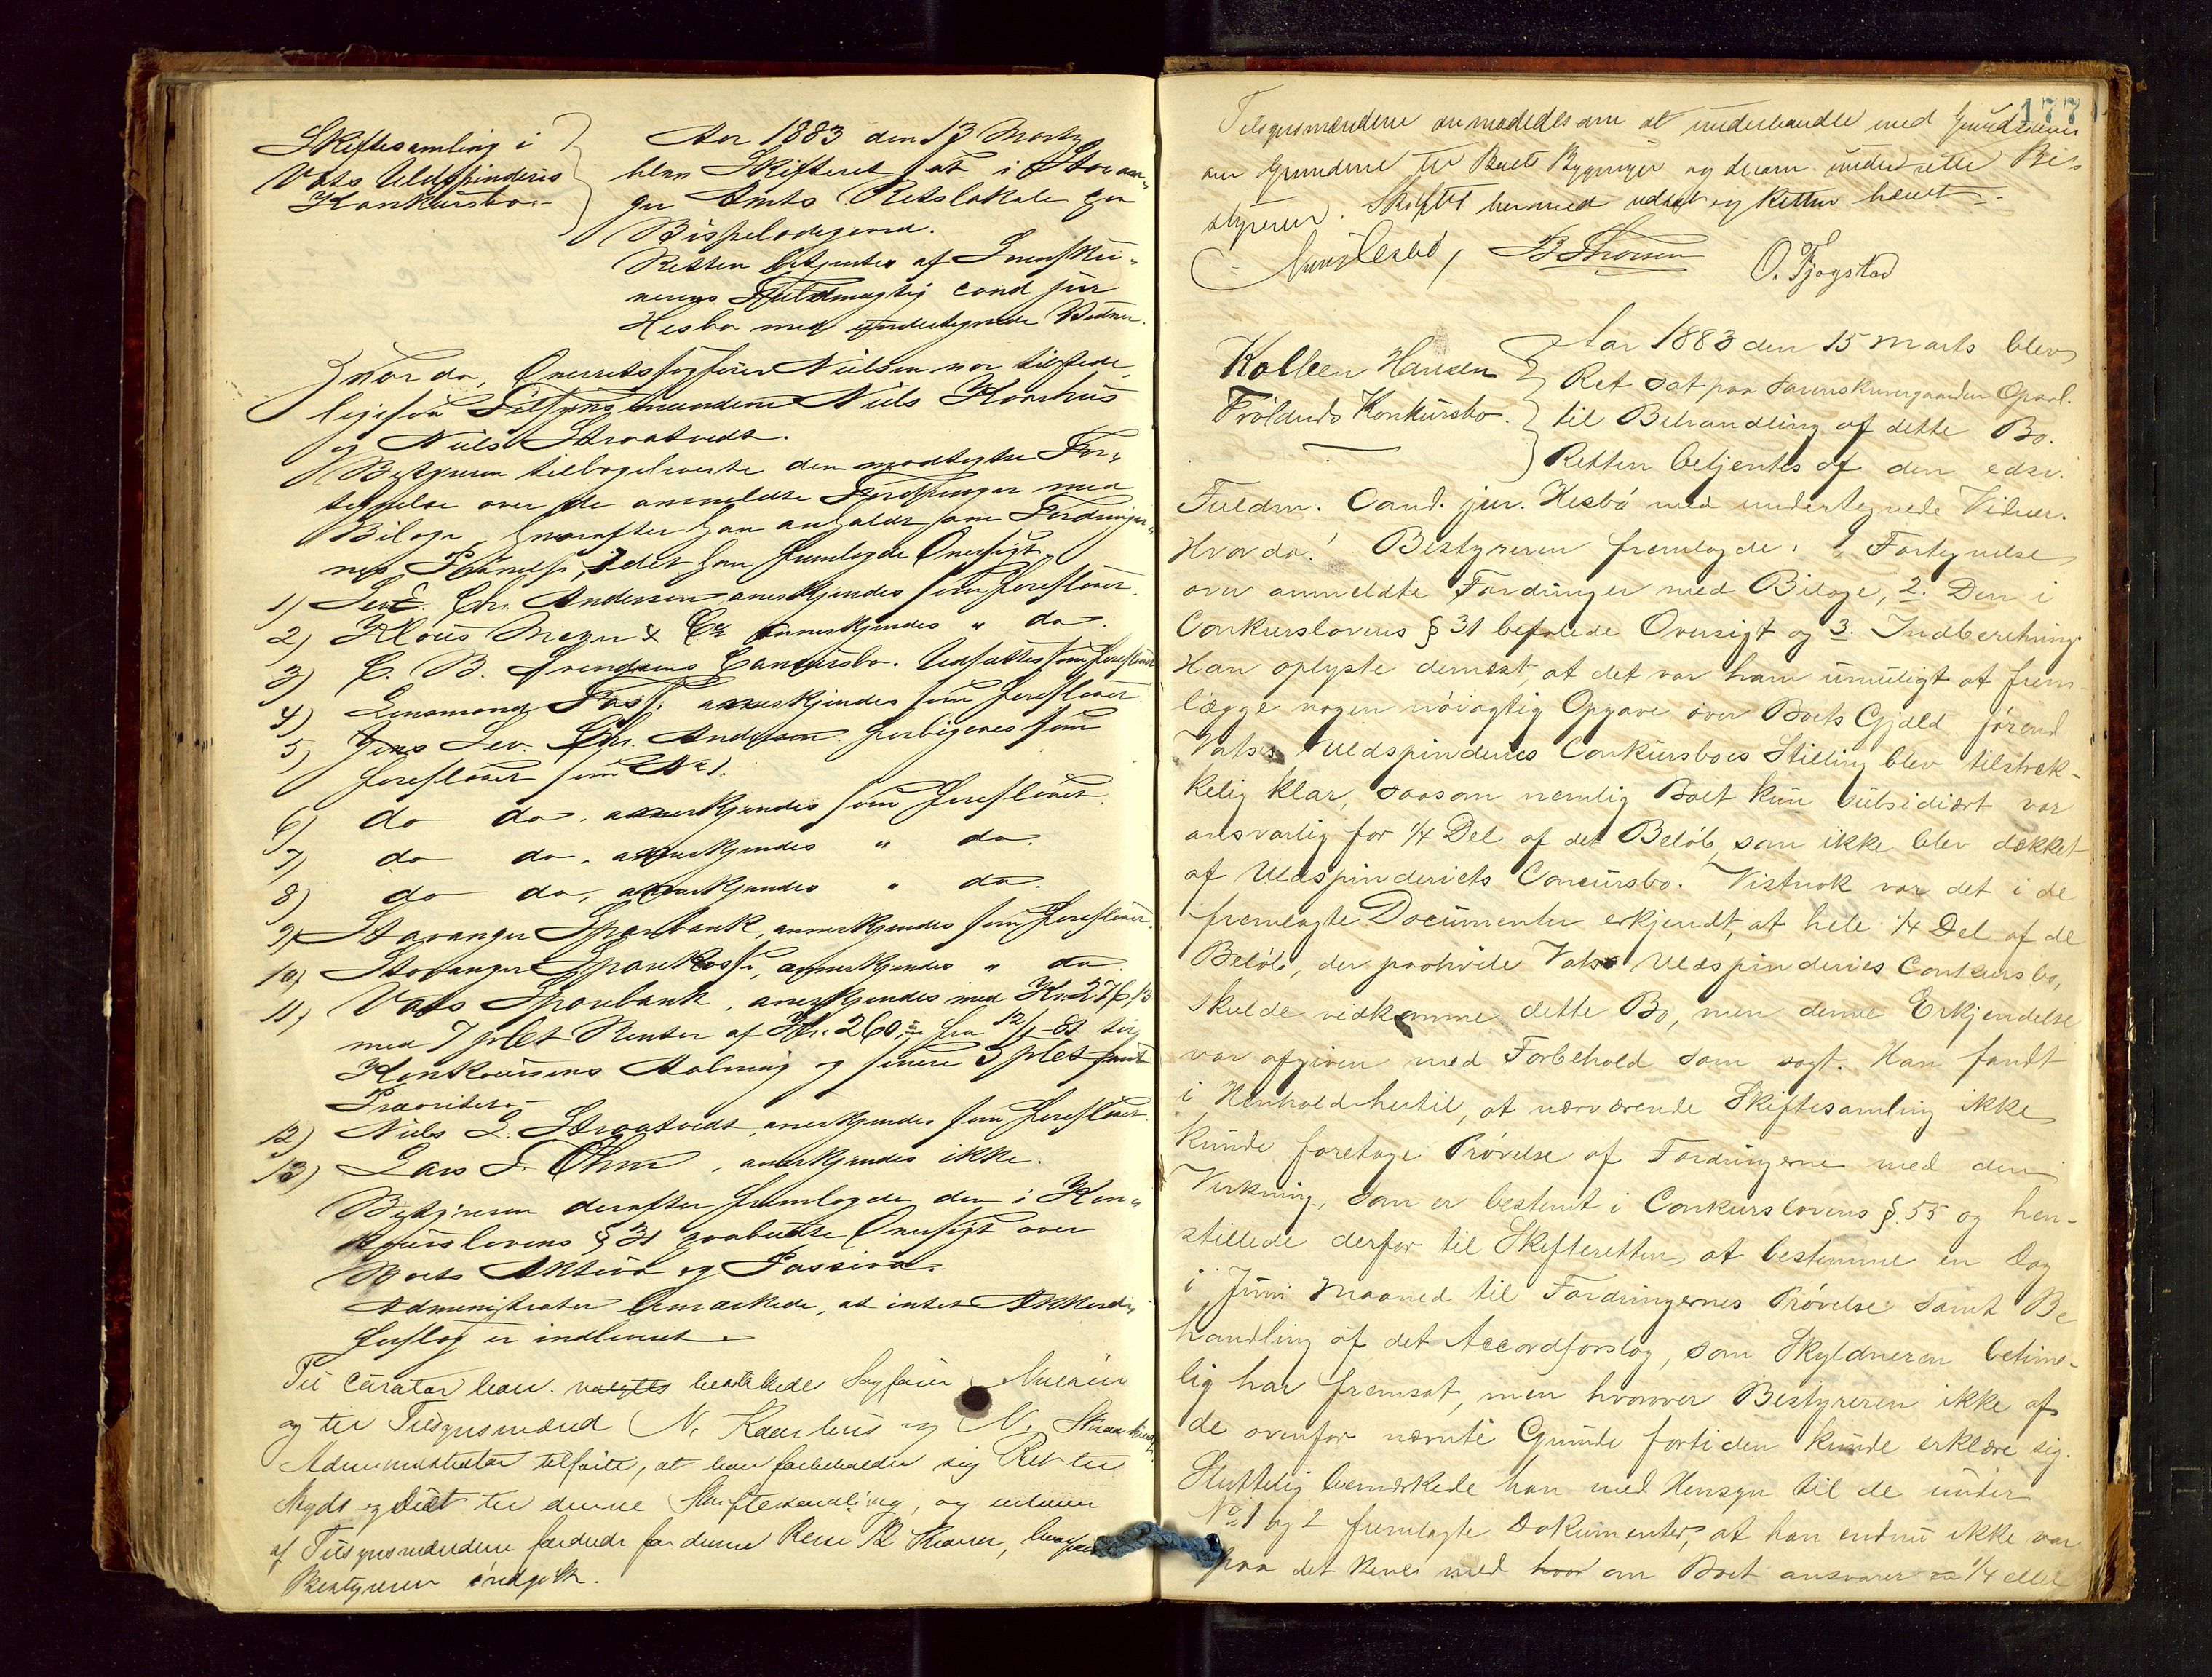 Skiftesamling i
Vats Uldspinderis
Konkursbo.
Aar 1883 den 13 Marts
blev Skifteret sat i Stavan-
ger Amts Retslokale paa
Bispeladegaard.
Retten betjentes af Sorenskri-
verens Fuldmægtig cand jur
Hesbø med undertegnede Vidner.
Hvor da, Overretssagfører Nielsen var tilstede,
ligesaa Tilsynsmændene Niels Kaarhus
og Niels Straatvedt.
Bestyreren tilbageleverte den modtagne For-
tegnelse over de anmeldte Fordringer med
Bilage, hvorefter han anholdt om Fordringer-
nes Prøvelse, idet han fremlagde Oversigt.
1) Sev. Chr. Andersen anerkjendes som foreslaaet.
2) Klaus Meyer & Co anerkjendes " do.
3) C. B. Svendsens Concursbo. Udsættes som foreslaaet
4) Lensmand Fast. anerkjendes som foreslaaet
5) Jens Sev. Chr. Andersen. forbigaaes som
foreslaaet som No 1.
6) do do. anerkjendes som foreslaaet.
7) do do. anerkjendes " do.
8) do do, anerkjendes " do.
9) Stavanger Sparebank, anerkjendes som foreslaaet.
10) Stavanger Sparekasse, anerkjendes " do.
11) Vats Sparebank, anerkjendes med Kr. 276,13
med 7 pCt Renter af Kr. 260 fra 12/1-81 til
Konkursens Aabning og senere 5 pCt samt
Prioritet.
12) Niels L. Straatvedt, anerkjendes som foreslaaet.
13) Lars S. Ohm, anerkjendes ikke.
Bestyreren derefter fremlagde den i Kon-
kurslovens § 31 paabudte Oversigt over
Boets Aktiva og Passiva.
Administrator bemærkede, at intet Akkords-
forslag er indleveret.
Til Curator blev valgtes beskikkedes Sagfører Nielsen
og til Tilsynsmænd N. Kaarhus og N. Straatvedt.
Administrator tilførte, at han forbeholder sig Ret til
Skyds og Diæt til denne Skiftesamling, og enhver
af Tilsynsmændene fordrede for denne Reise Kroner,
Bestyreren indgik.
177
Tilsynsmændene anmodedes om at underhandle med Grundeieren
om Grundene til Boets Bygninger og derom underrette Be-
styreren. Skiftet hermed udsat og Retten hævet.
Hesbø, B Thorsen O. Fjogstad
Kolleen Hansen
Frölands Konkursbo.
Aar 1883 den 15 Marts blev
Ret sat paa Sorenskrivergaarden Opsal
til Behandling af dette Bo.
Retten betjentes af den edsv.
Fuldm. Cand. jur. Hesbö med undertegnede Vidner.
Hvorda! Bestyreren fremlagde: 1. Fortegnelse
over anmeldte Fordringer med Bilage, 2. Den i
Conkurslovens § 31 befalede Oversigt og 3. Indberetning.
Han oplyste dernæst, at det var ham umuligt at frem-
lægge nogen nöiagtig Opgave over Boets Gjæld förend
Vats Uldspinderies Conkursboes Stilling blev tilstræk-
kelig klar, saasom nemlig Boet kun subsidiært var
ansvarlig for 1/4 Del af det Belöb, som ikke blev dækket
af Uldspinderiets Concursbo. Vistnok var det i de
fremlagte Documenter erkjendt, at hele 1/4 Del af de
Belöb, der paahvile Vats Uldspinderies Conkursbo,
skulde vedkomme dette Bo, men denne Erkjendelse
var afgiven med Forbehold som sagt. Han fandt
i Henhold hertil, at nærværende Skiftesamling ikke
kunde foretage Prövelse af Fordringerne med den
Virkning, som er bestemt i Conkurslovens §. 55 og hen-
stillede derfor til Skifteretten at bestemme en Dag
i Juni Maaned til Fordringernes Prövelse samt Be
handling af det Accordforslag, som Skyldneren betime-
lig har fremsat, men hvorover Bestyreren ikke af
de ovenfor nævnte Grunde fortiden kunde erklære sig.
Sluttelig bemærkede han med Hensyn til de under
No 1 og 2 fremlagte Dokumenter, at han endnu ikke var
paa det Rene med hvor om Boet ansvarer 1/4 eller